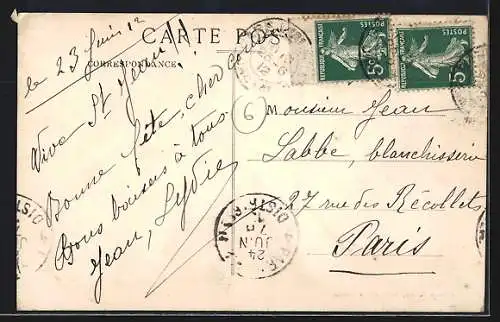 CARTE POS
CORRESPONDANCE
le 23 Juin 12
Vive St Jean!!
Bonne fête, cher
Bons baisers à tous
Jean, Lydie
6
REPUBLIQUE FRANÇAISE
POSTES
5c
REPUBLIQUE FRANÇAISE
POSTES
5c
Monsieur Jean
Labbe, blanchisserie
27 rue des Récollets
Paris
PARIS
DISTR
24
JUIN
7
DIST